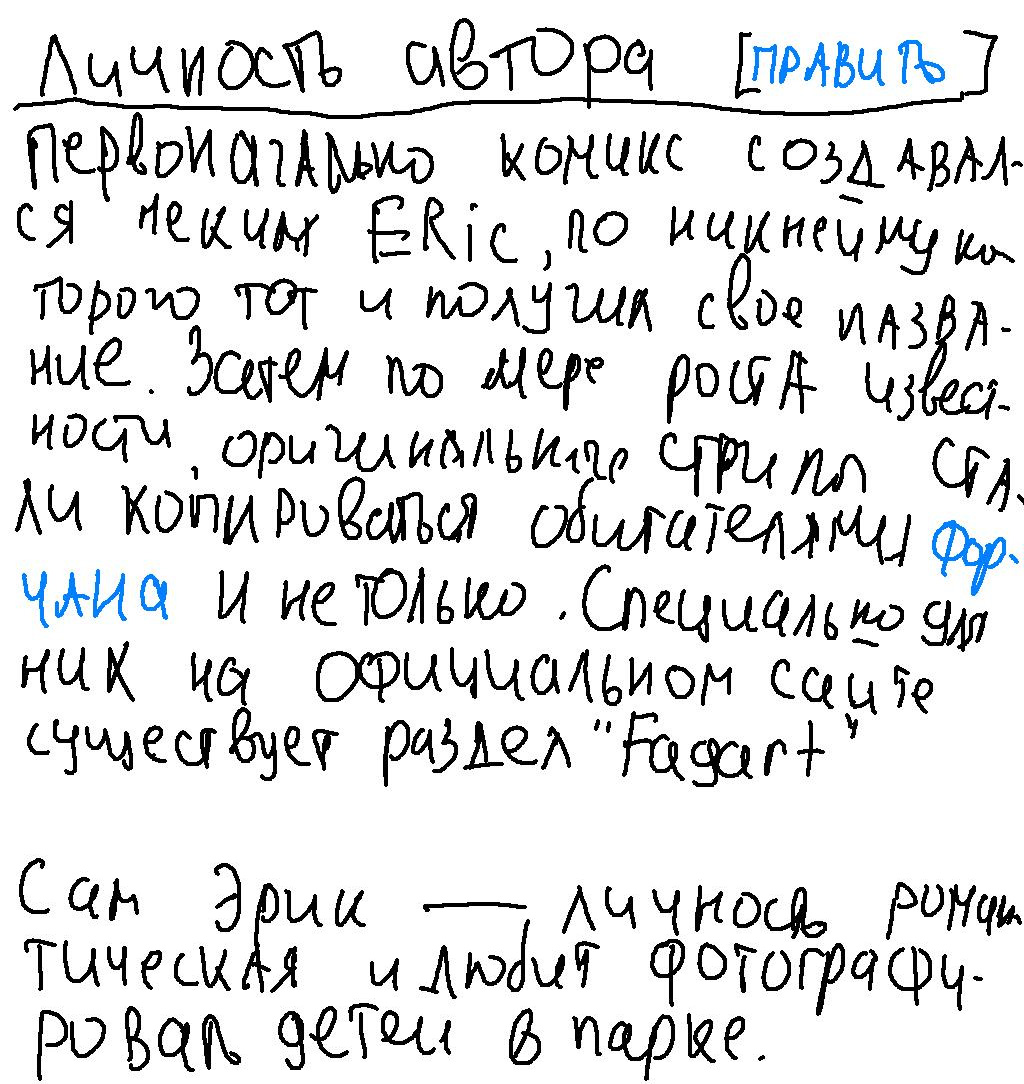 Личность автора [править]
первоначально комикс создавал-
ся неким ERic, по никнейму ко
торого тот и получил свое назва-
ние. Затем по мере роста извест-
ности, оригинальные стрипы ста-
ли копироваться обитателями Фор-
чана и не только. Специально для
них на официальном сайте
существует раздел "Fagart"
Сам Эрик — личность роман
тическая и любит фотографи-
ровать детей в парке.